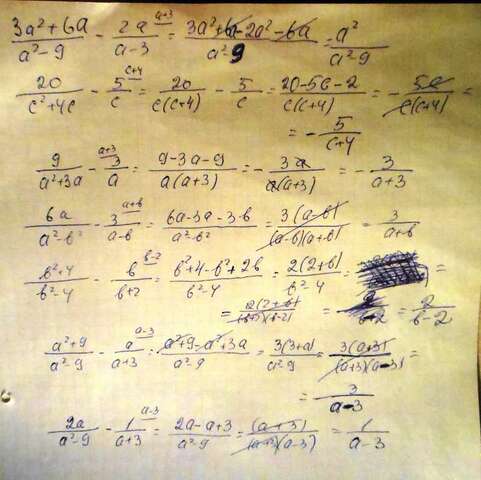 (3a²+6a)/(a²-9) - 2a/(a-3) ^(a+3) = (3a²+6a-2a²-6a)/(a²-9) = a²/(a²-9)
20/(c²+4c) - 5/c ^(c+4) = 20/(c(c+4)) - 5/c = (20-5c-2)/(c(c+4)) = - 5c/(c(c+4)) =
= - 5/(c+4)
9/(a²+3a) - 3/a ^(a+3) = (9-3a-9)/(a(a+3)) = - 3a/(a(a+3)) = - 3/(a+3)
6a/(a²-b²) - 3/(a-b) ^(a+b) = (6a-3a-3b)/(a²-b²) = 3(a-b)/((a-b)(a+b)) = 3/(a+b)
(b²+4)/(b²-4) - b/(b+2) ^(b-2) = (b²+4-b²+2b)/(b²-4) = 2(2+b)/(b²-4) = =
= 2(2+b)/((b+2)(b-2)) = = 2/(b-2)
(a²+9)/(a²-9) - a/(a+3) ^(a-3) = (a²+9-a²+3a)/(a²-9) = 3(3+a)/(a²-9) = 3(a+3)/((a+3)(a-3)) =
= 3/(a-3)
2a/(a²-9) - 1/(a+3) ^(a-3) = (2a-a+3)/(a²-9) = (a+3)/((a+3)(a-3)) = 1/(a-3)